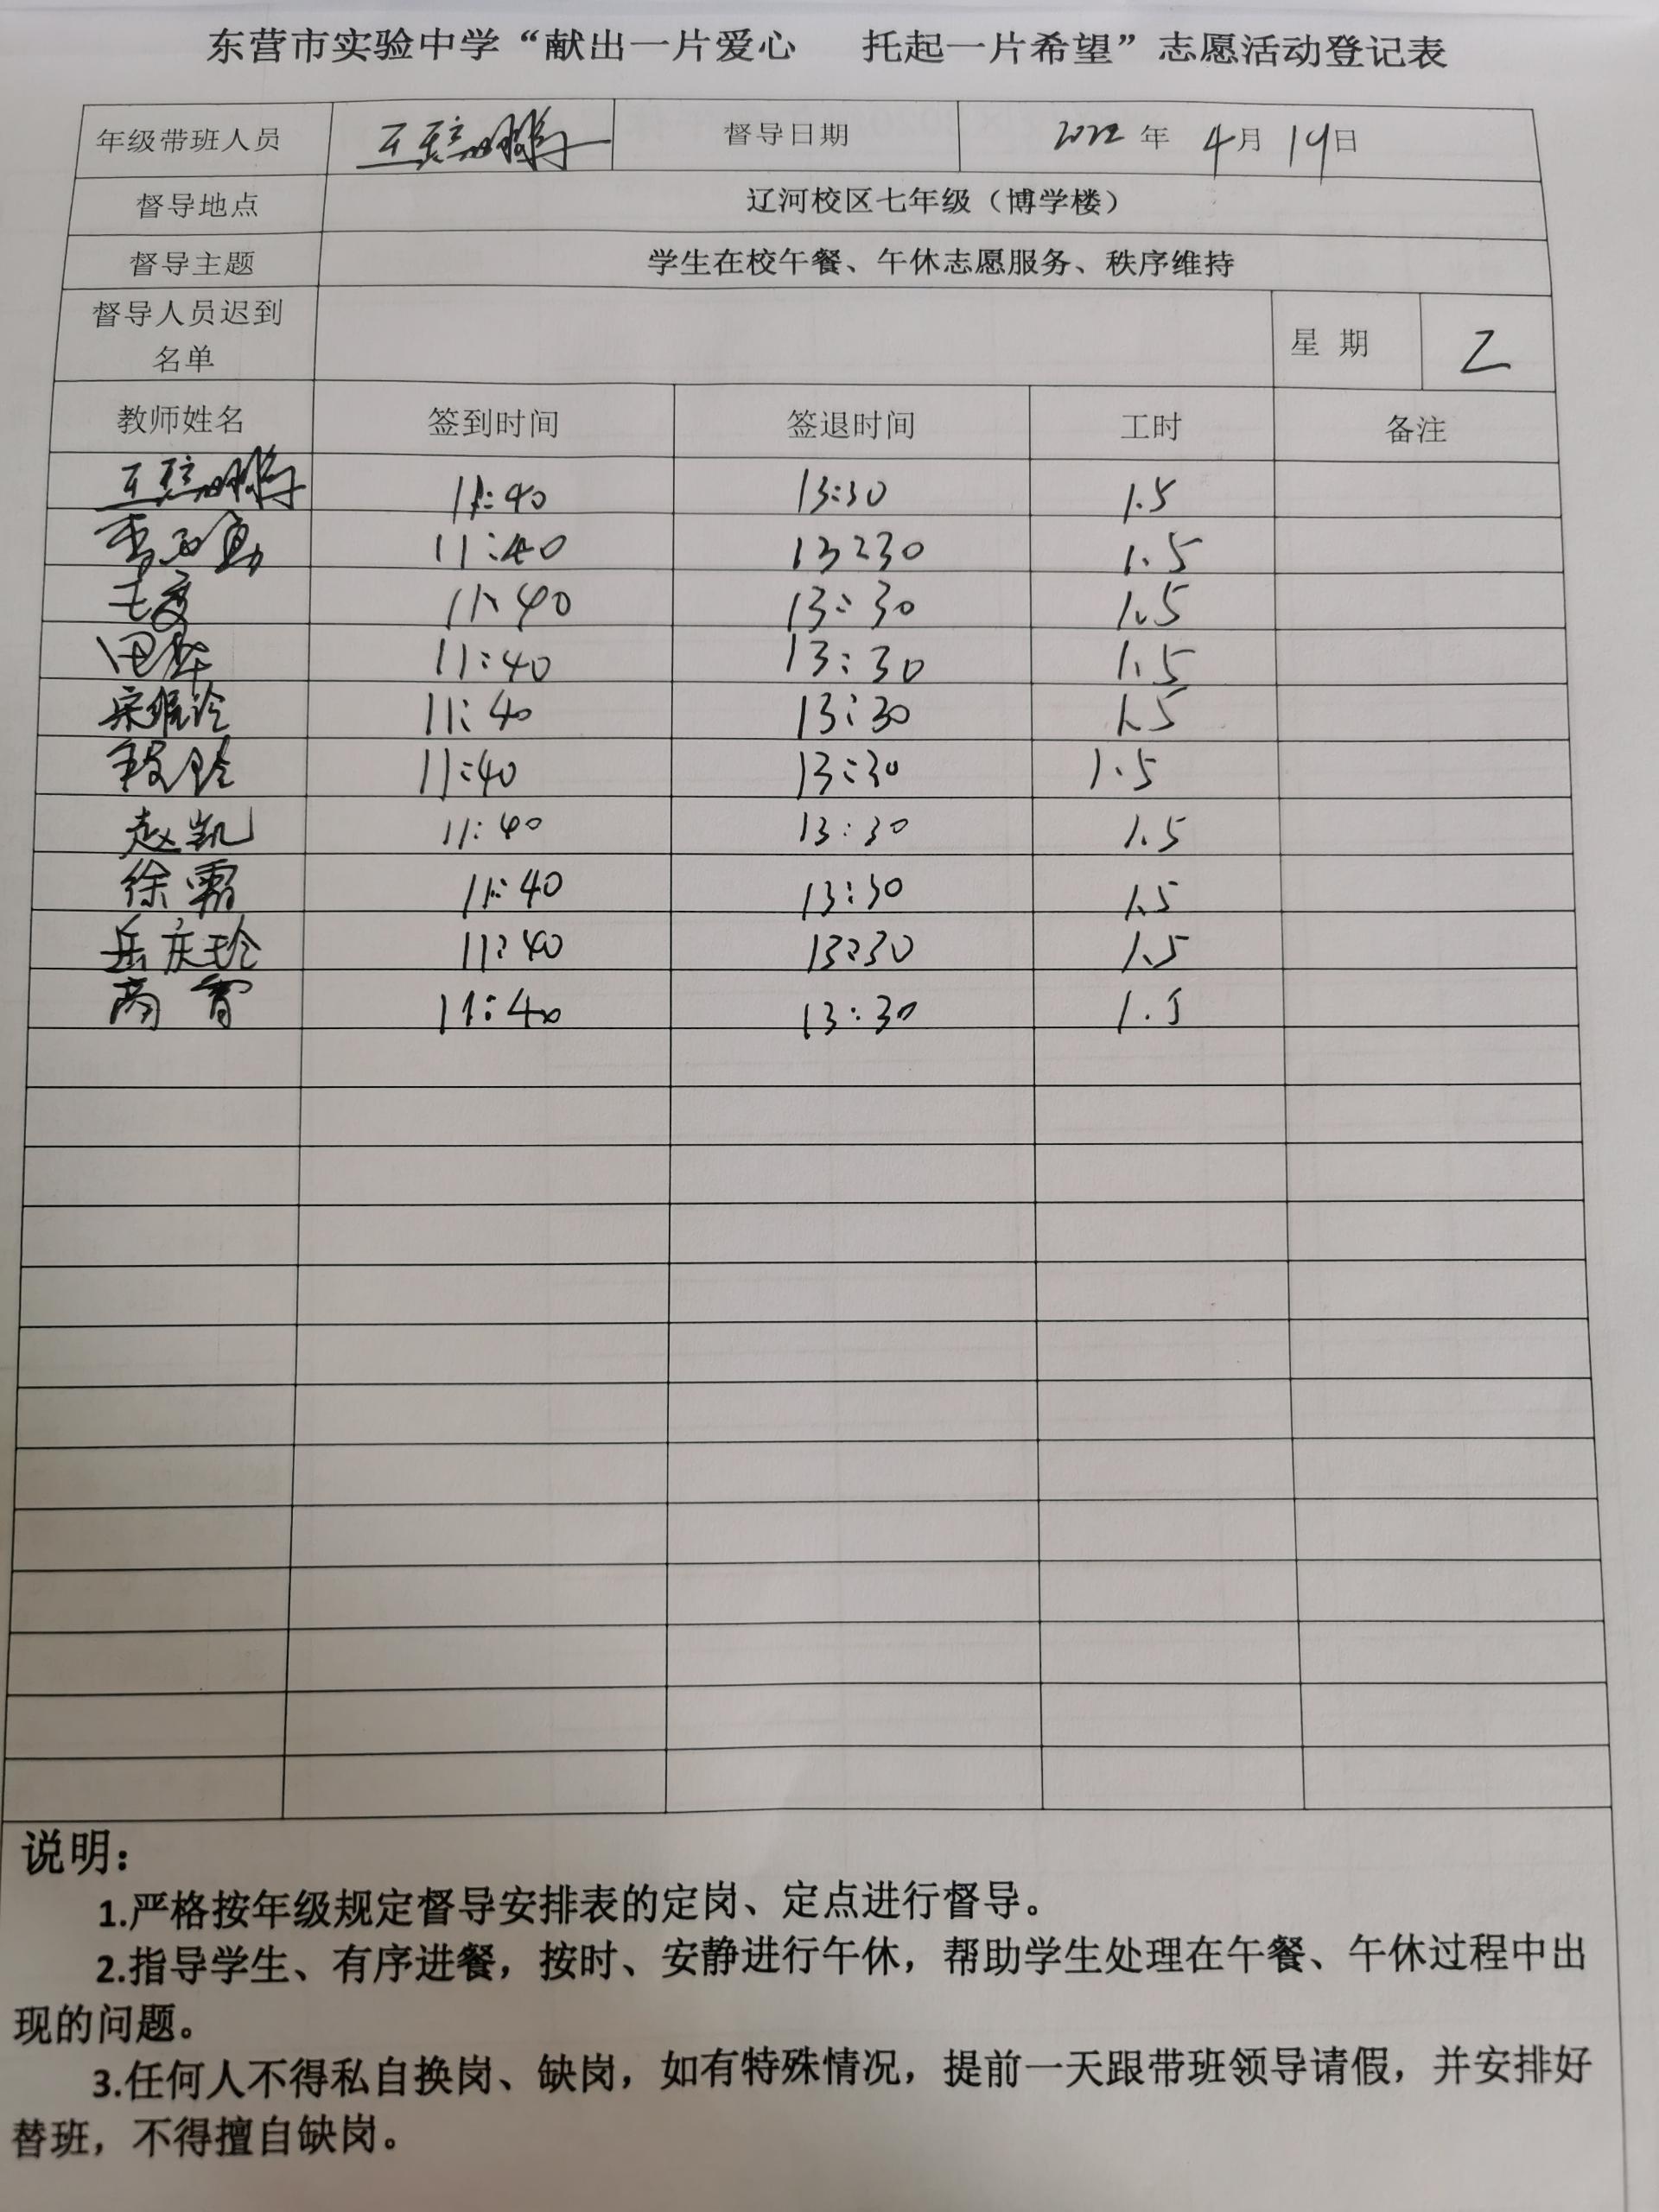 东营市实验中学“献出一片爱心 托起一片希望”志愿活动登记表
年级带班人员 督导日期 2022 年 4 月 19 日
督导地点 辽河校区七年级（博学楼）
督导主题 学生在校午餐、午休志愿服务、秩序维持
督导人员迟到名单 星 期 二
教师姓名 签到时间 签退时间 工时 备注
11:40 13:30 1.5
11:40 13:30 1.5
11:40 13:30 1.5
11:40 13:30 1.5
11:40 13:30 1.5
11:40 13:30 1.5
赵凯 11:40 13:30 1.5
徐霜 11:40 13:30 1.5
岳庆玲 11:40 13:30 1.5
11:40 13:30 1.5
说明：
1.严格按年级规定督导安排表的定岗、定点进行督导。
2.指导学生、有序进餐，按时、安静进行午休，帮助学生处理在午餐、午休过程中出
现的问题。
3.任何人不得私自换岗、缺岗，如有特殊情况，提前一天跟带班领导请假，并安排好
替班，不得擅自缺岗。